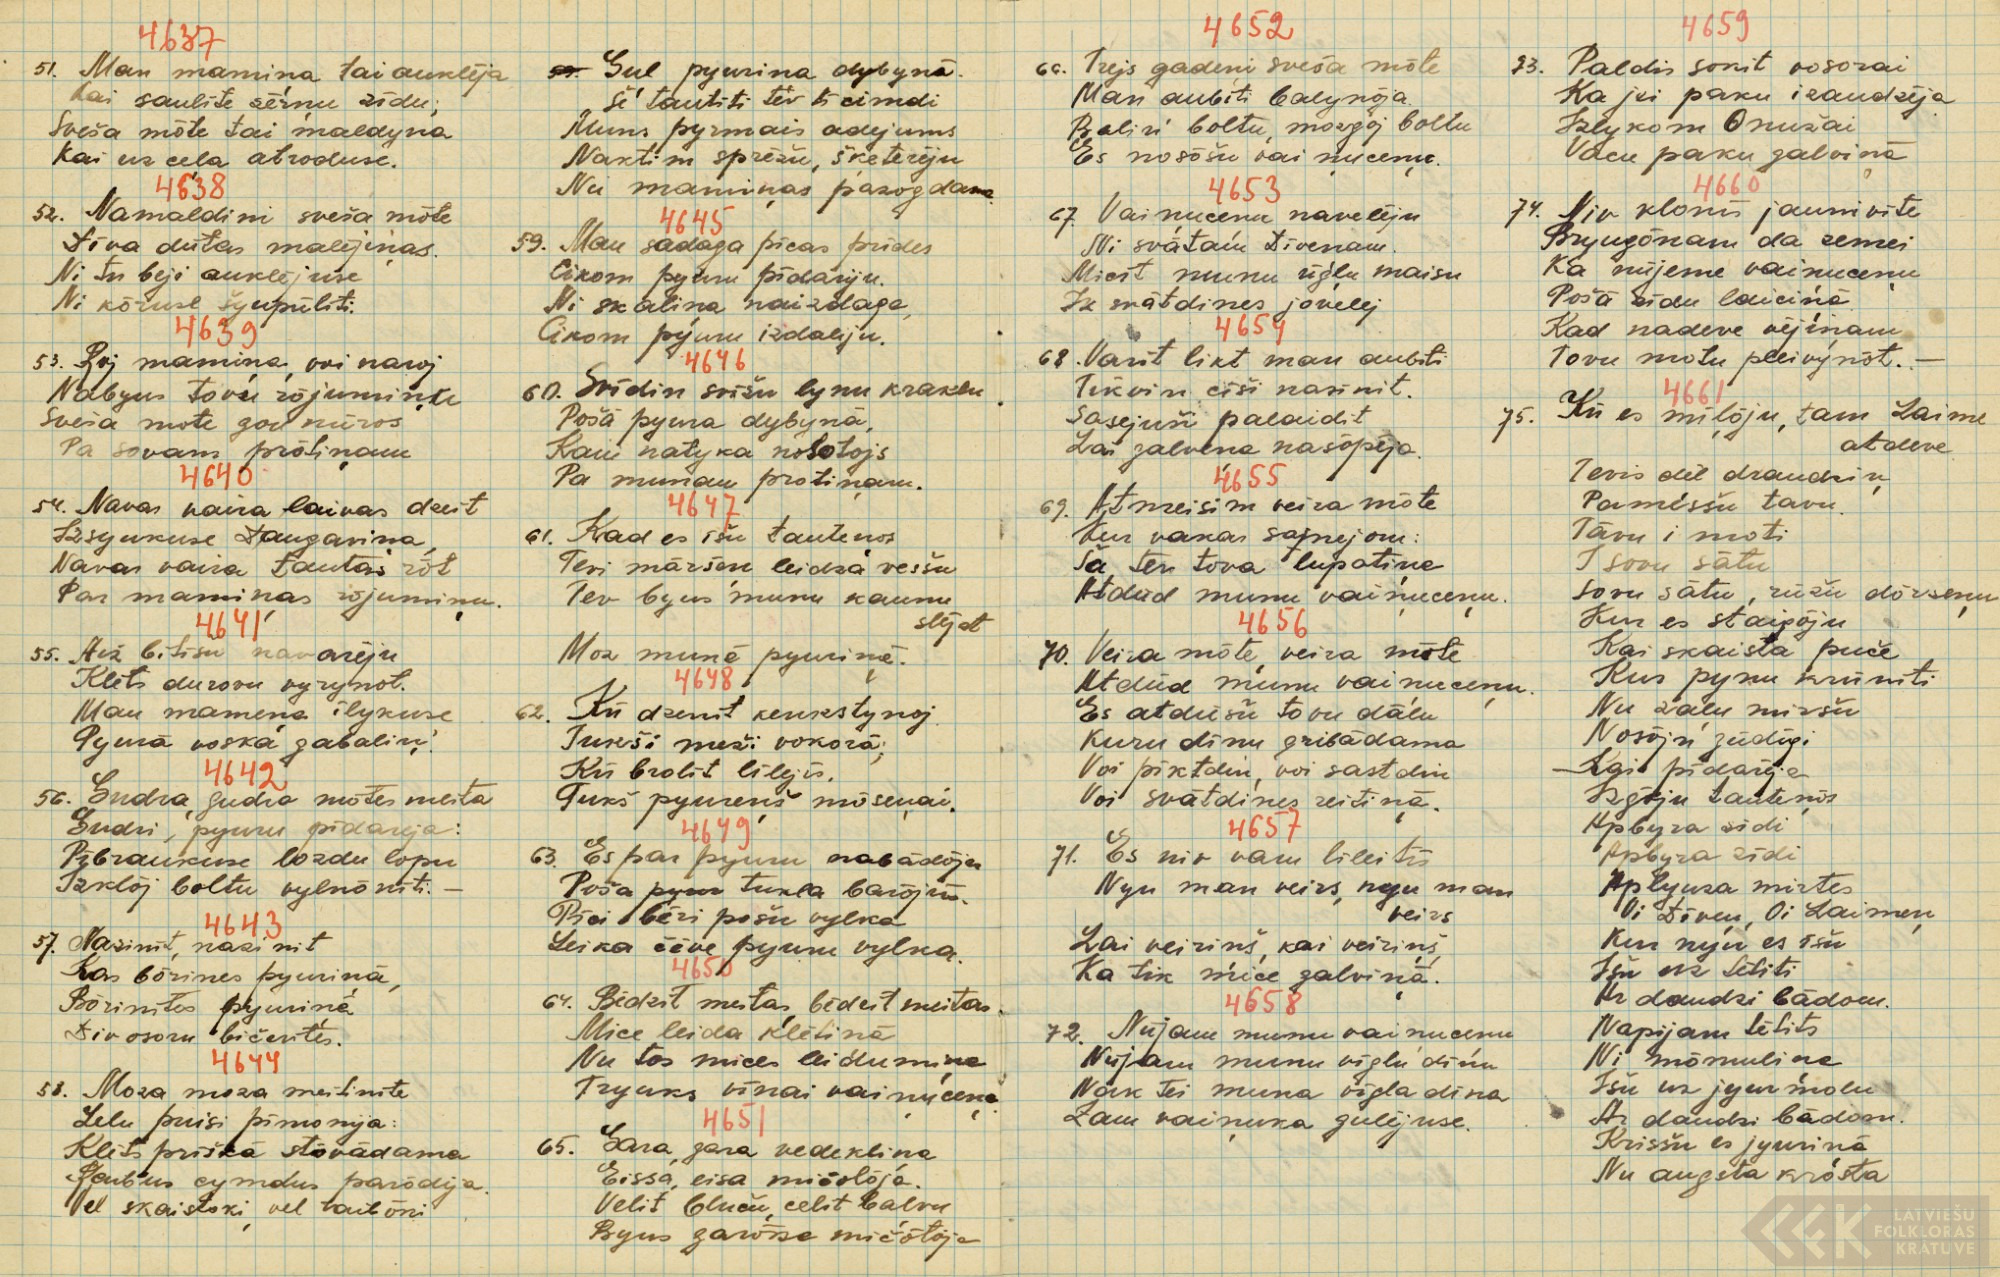 4637
51. Man mamiņa tai auklēja
Kai saulīte zērņu zīdu;
Sveša mōte tai maldyna
Kai uz ceļa atroduse.
4638
52. Namaldini sveša mōte
Dīva dūtas malejiņas.
Ni tu beji auklējuse
Ni kōruse šyupūlīti.
4639
53. Rōj mamiņa, voi narōj
Nabyus tovu rōjumiņu
Sveša mote gon nūros
Pa sovam prōtiņam
4640
54. Navas vaira laivas dzeit
Izsyukuse Daugaviņa,
Navas vaira tautas rōt
Par mamiņas rōjumiņu.
4641
55. Aiz bitīšu navarēju
Klēts durovu vyrynot.
Man mameņa īlykuse
Pyurā voska gabaliņ.
4642
56. Gudra, gudra mōtes meita
Gudri, pyuru pīdareja:
Pībraukuse lozdu lopu
Izklōj boltu vylnōnīti. —
4643
57. Nazinit, nazinit
Kas bōrines pyuriņā,
Bōrinītes pyuriņā
Div osoru bičerītes.
4644
58. Moza moza meitinīte
Lelu puisi pīmonīja:
Klēts prīškā stōvādama
Roibus cymdus parōdija.
Vel skaistoki, vel raibōki
Gul pyuriņa dybynā.
Šē tautīti tev ti cimdi
Muns pyrmais adejums
Naktim sprēžu, šketerēju
Nu mamiņas pazogdama
4645
59. Man sadaga pīcas prīdes
Cikom pyuru pīdariju.
Ni skaliņa naizdaga,
Cikom pyuru izdaliju.
4646
60. Svīdin svīžu lynu kraklu
Pošā pyura dybynā,
Kam natyka nosotojs
Pa munam protiņam.
4647
61. Kad es īšu tauteņos
Tevi māršeņ leidzā vesšu
Tev byus munu kaunu
slēpt
Moz munā pyuriņā.
4648
62. Kū dzenit keukstynoj
Tukši meži vokorā;
Kū brolīt lilejīs.
Tukš pyureņš mōseņai.
4649
63. Es par pyuru nabādōju
Poša tukla barōjūs.
Pīci bēri pošu vylka
Leika čēve pyuru vylka.
4650
64. Bēdzit meitas, bēdzit meitas
Mice leida klētiņā
Nu tos mices leidumiņa
Tryuks vīnai vaiņuceņa
4651
65. Gara, gara vedekliņa
Eissā, eisa mičōtōja.
Velit bluču, celit balvu
Byus garōka mičōtōja
4652
66. Trejs gadeņi sveša mōte
Man aubīti balynōja.
Bolini boltu, mozgōj boltu
Es nosōšu vaiņuceņu.
4653
67. Vaiņuceņu navelēju
Ni svātam Dīveņam.
Micīt munu vīglu maisu
Iz svātdines jōvelej
4654
68. Varit likt man aubīti
Tikvin cīši nasinit.
Sasejuši palaidit
Lai galveņa nasōpēja.
4655
69. Atmeisim veira mōte
Kur vakar sajnejom:
Ša tev tova lupatiņa
Atdūd munu vaiņuceņu.
4656
70. Veira mōte, veira mōte
Atdūd munu vaiņuceņu.
Es atdūšu tovu dālu
Kuru dīnu gribādama
Voi pīktdiņ, voi sastdiņ
Voi svātdines reitiņā.
4657
71. Es niv vam lileitīs
Nyu man veirs, nyu man
veirs
Lai veiriņš, kai veiriņš,
Ka tik mice galviņā.
4658
72. Nūjam munu vaiņuceņu
Nūjam munu vīglu dīnu
Nōk tei muna vīgla dīna
Zam vaiņuka gulējuse.
4659
73. Paldis sokit vosorai
Ka jei paku izaudzēja
Izlykom Onužai
Vacu paku galviņā
4660
74. Niv klonīs jaunivīte
Bryugōnam da zemei
Ka nūjeme vaiņuceņu
Pošā zīdu laiciņā
Kad nadeve vējiņam
Tovu motu pleivynōt. —
4661
75. Kū es mīļōju, tam Laime
atdeve
Tevis dēl draudziņ
Pamesšu tavu.
Tāvu i moti
I sovu sātu
Sovu sātu, rūžu dōrzeņu
Kur es staigōju
Kai skaista puče
Kur pynu krūnīti
Nu zaļu miršu
Nosōjsi zūdīgi
Lai pīdarēja
Izgōju tauteņōs
Apbyra zīdi
Apbyra zīdi
Aplyuza mirtes
Oi Dīveņ, Oi Laimeņ
Kur nyu es īšu
Īšu uz tētīti
Ar daudzi bādom.
Napijam tētīts
Ni mōmuliņa
Īšu uz jyurmolu
Ar daudzi bādom.
Krissšu es jyuriņā
Nu augsta krosta
LATVIEŠU
FOLKLORAS
KRĀTUVE